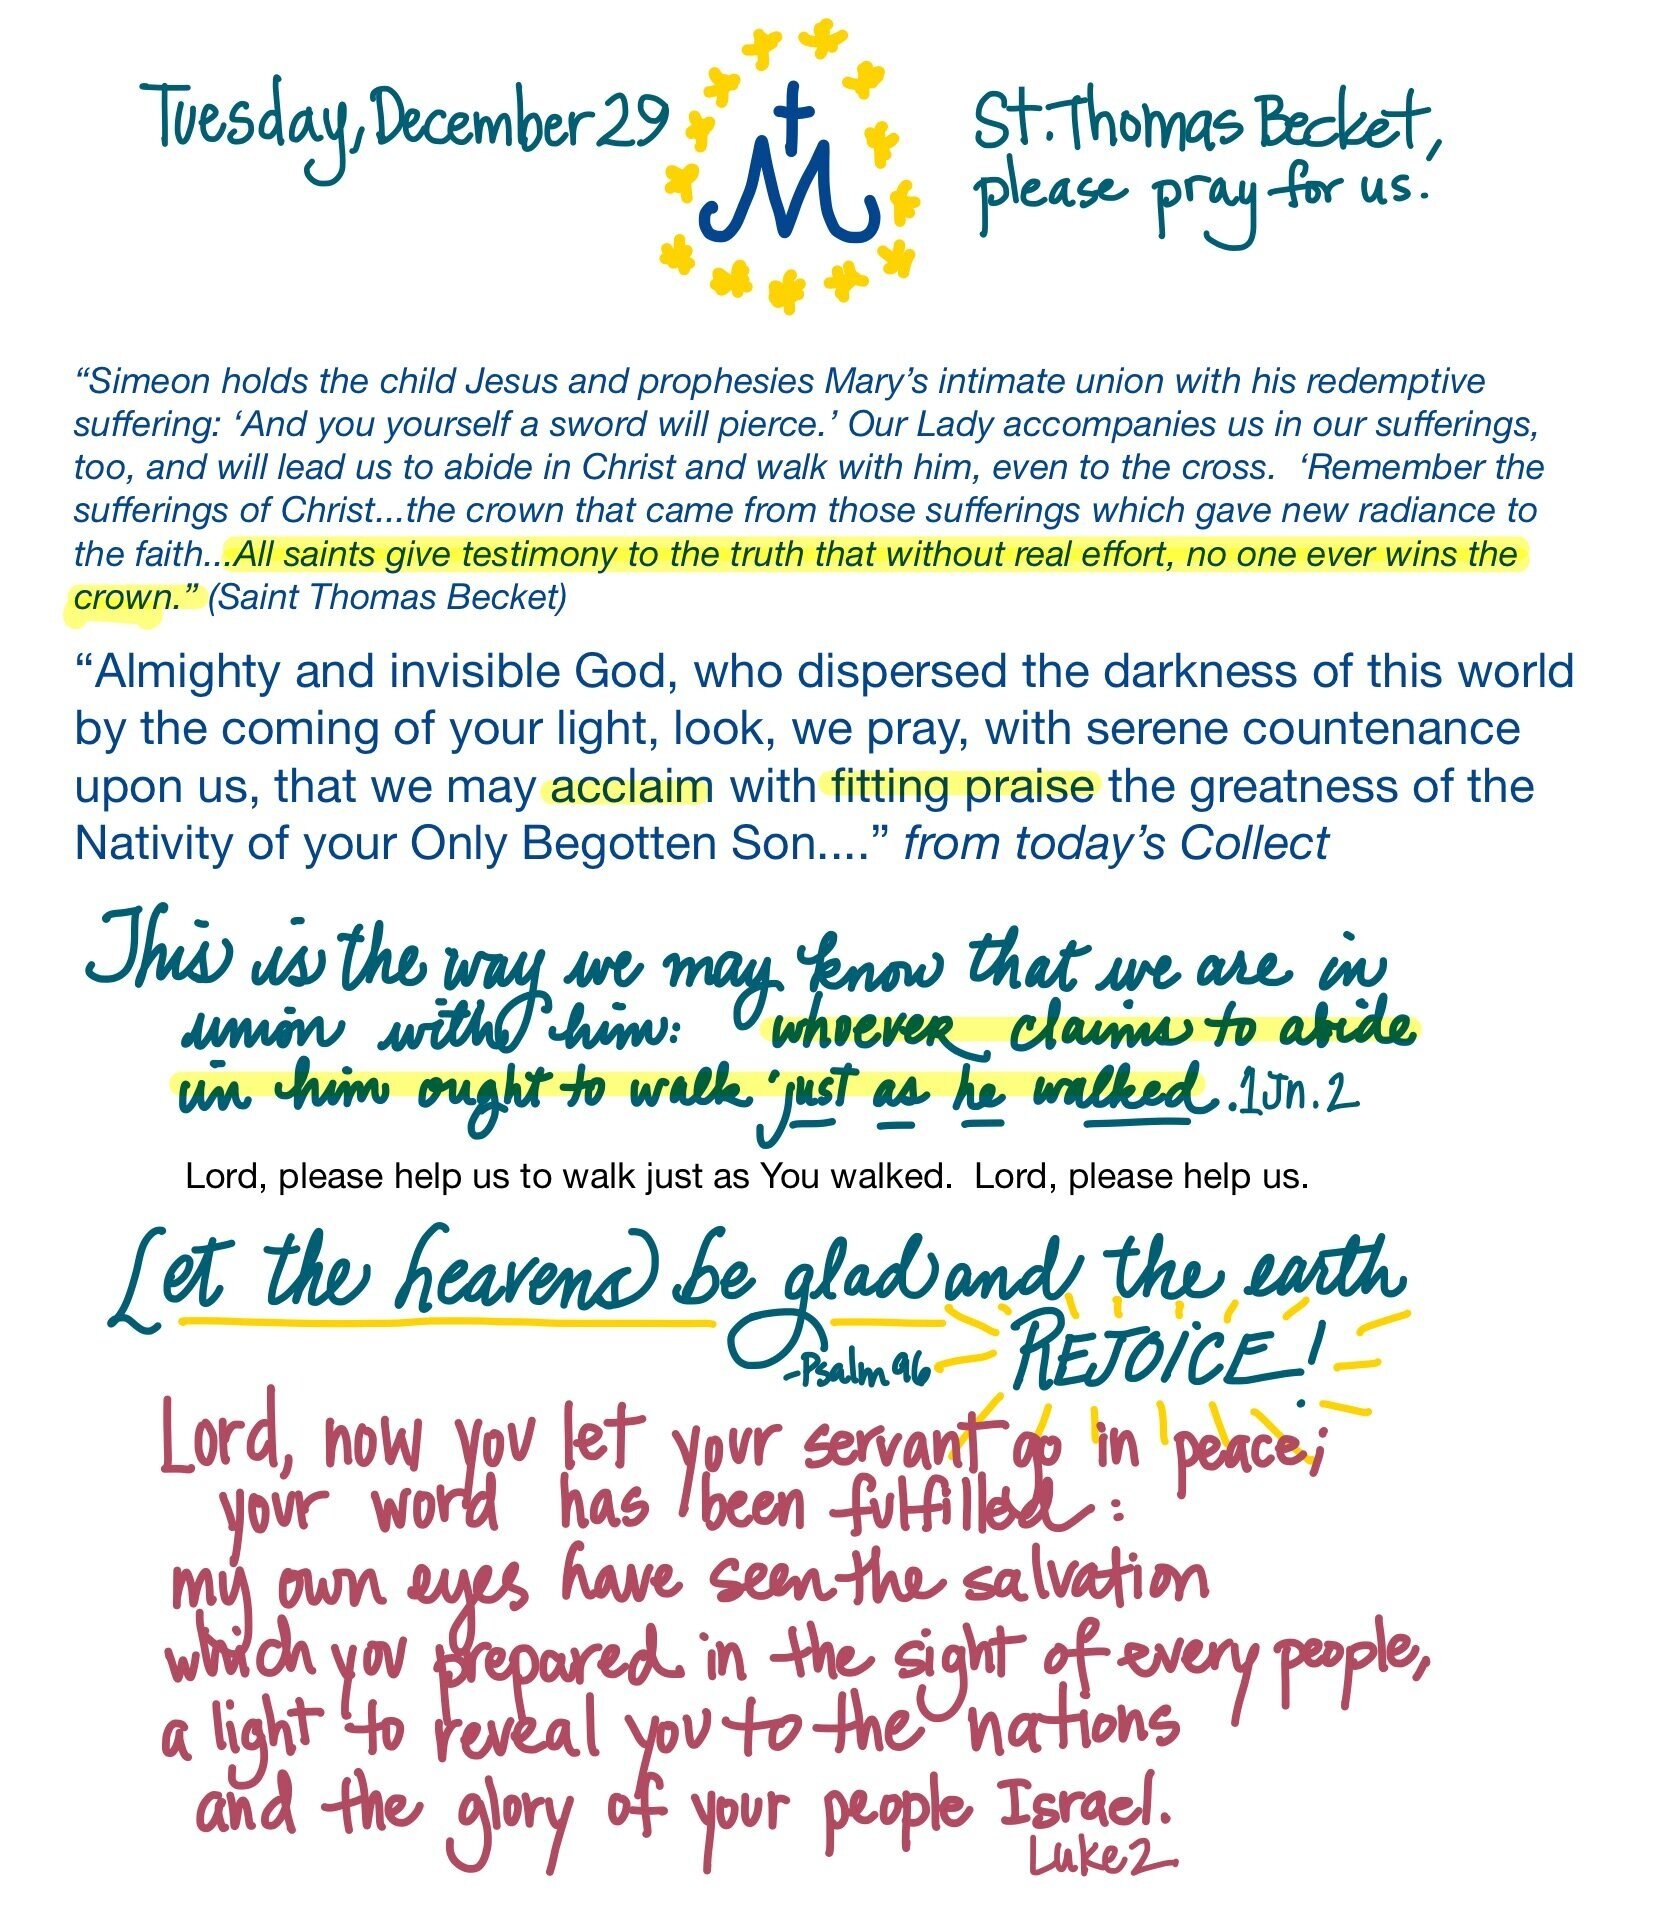 Tuesday, December 29
M
St. Thomas Becket,
please pray for us.
“Simeon holds the child Jesus and prophesies Mary’s intimate union with his redemptive
suffering: ‘And you yourself a sword will pierce.’ Our Lady accompanies us in our sufferings,
too, and will lead us to abide in Christ and walk with him, even to the cross.  ‘Remember the
sufferings of Christ...the crown that came from those sufferings which gave new radiance to
the faith...All saints give testimony to the truth that without real effort, no one ever wins the
crown.” (Saint Thomas Becket)
“Almighty and invisible God, who dispersed the darkness of this world
by the coming of your light, look, we pray, with serene countenance
upon us, that we may acclaim with fitting praise the greatness of the
Nativity of your Only Begotten Son....” from today’s Collect
This is the way we may know that we are in
union with him: whoever claims to abide
in him ought to walk just as he walked. 1 Jn. 2
Lord, please help us to walk just as You walked.  Lord, please help us.
Let the heavens be glad and the earth
REJOICE!
-Psalm 96
Lord, now you let your servant go in peace;
your word has been fulfilled:
my own eyes have seen the salvation
which you prepared in the sight of every people,
a light to reveal you to the nations
and the glory of your people Israel.
Luke 2